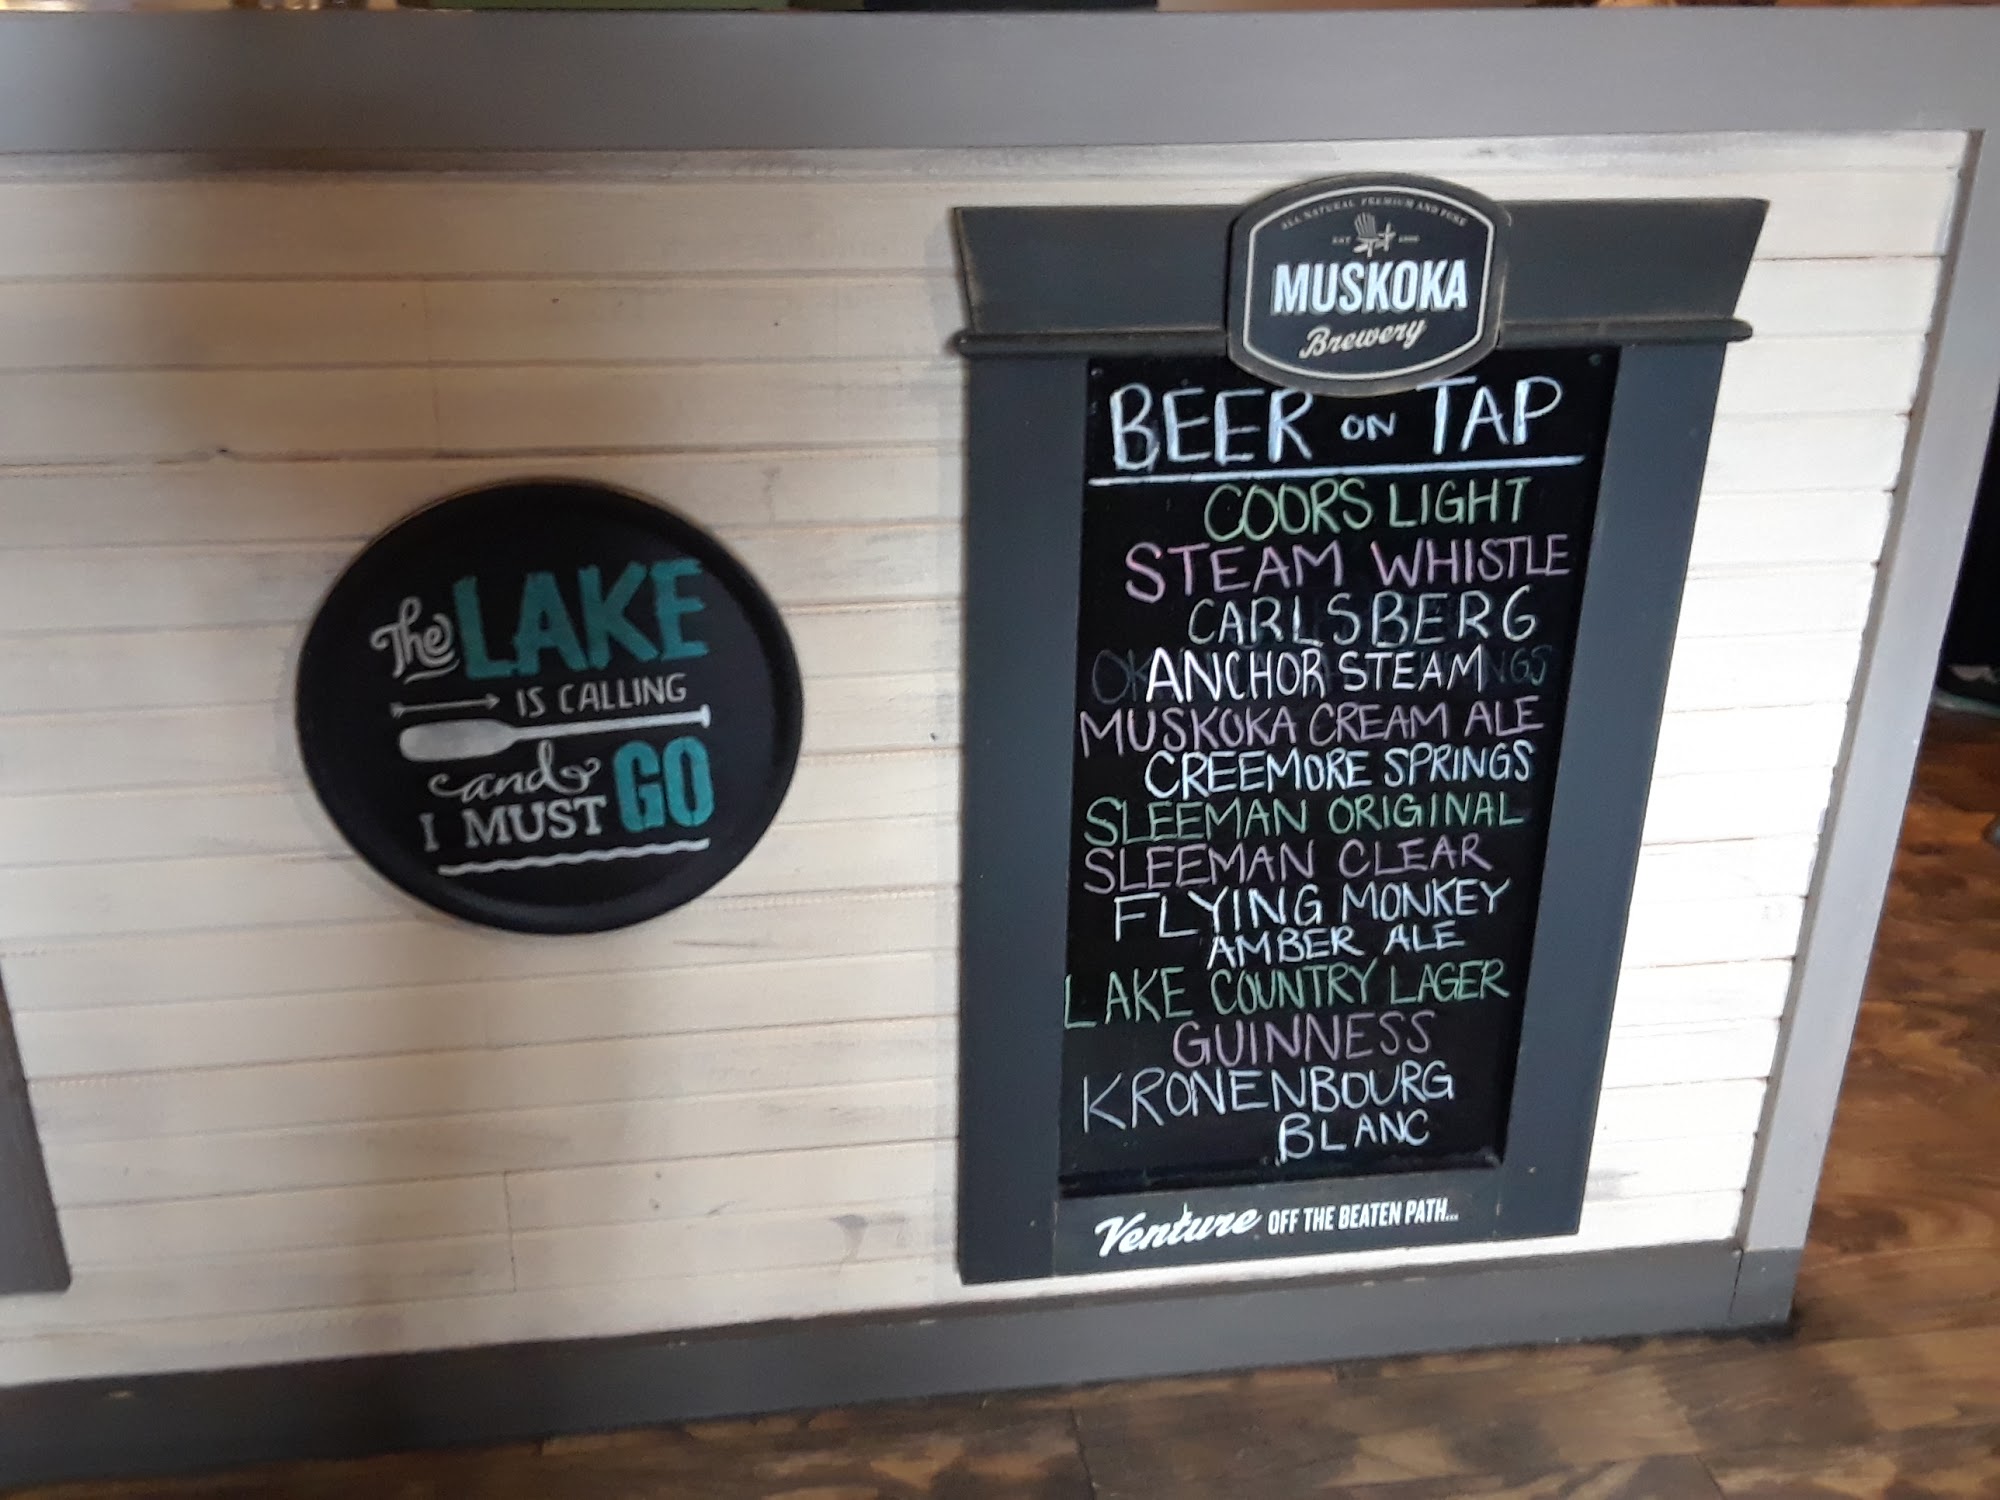 The LAKE
IS CALLING
and
I MUST GO
ALL NATURAL PREMIUM AND PURE
EST
MUSKOKA
Brewery
BEER ON TAP
COORS LIGHT
STEAM WHISTLE
CARLSBERG
ANCHOR STEAM
MUSKOKA CREAM ALE
CREEMORE SPRINGS
SLEEMAN ORIGINAL
SLEEMAN CLEAR
FLYING MONKEY
AMBER ALE
LAKE COUNTRY LAGER
GUINNESS
KRONENBOURG
BLANC
Venture OFF THE BEATEN PATH...